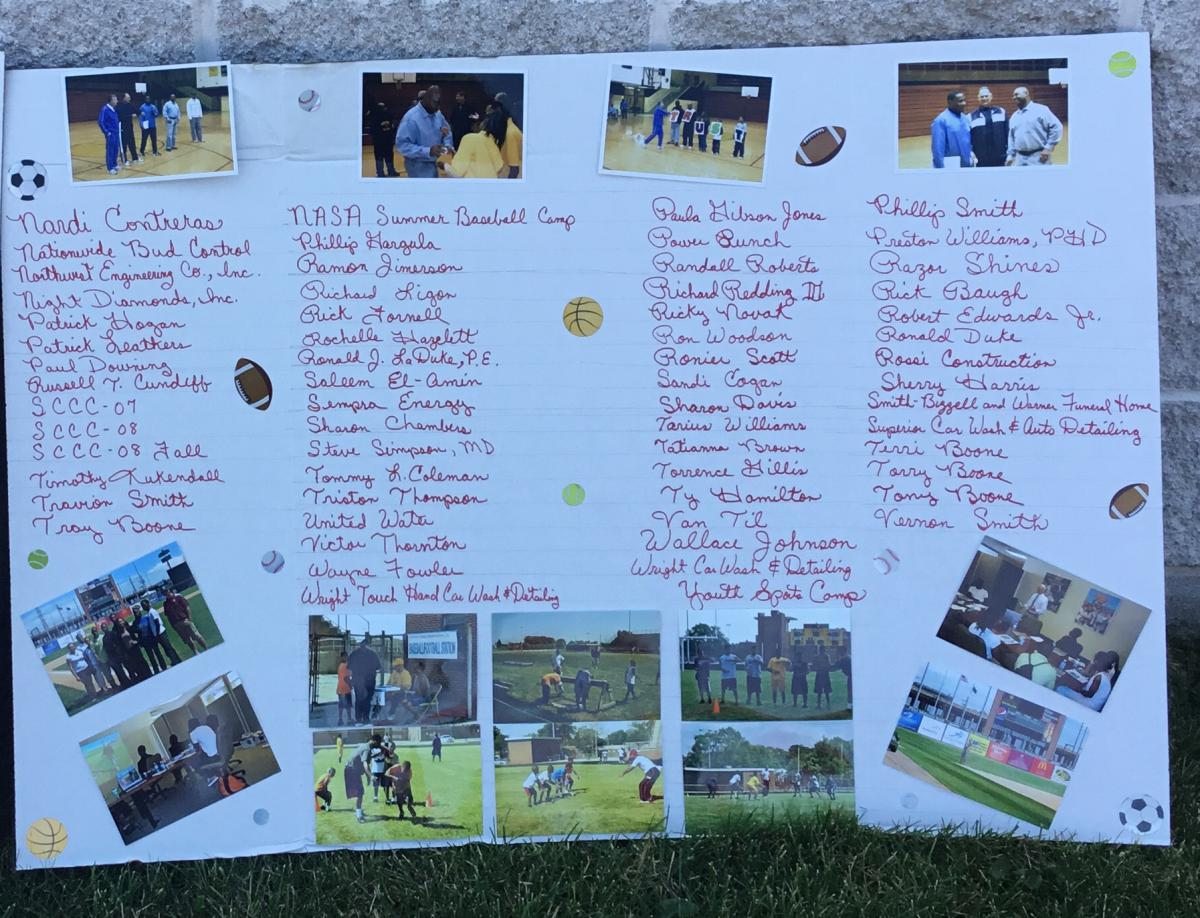 Nardi Contreras
Nationwide Bud Control
Northwest Engineering Co., Inc.
Night Diamonds, Inc.
Patrick Hogan
Patrick Leathers
Paul Downing
Russell T. Cundiff
SCCC-07
SCCC-08
SCCC-08 Fall
Timothy Kukendall
Travion Smith
Troy Boone
NASA Summer Baseball Camp
Phillip Gargula
Ramon Jimerson
Richard Ligon
Rick Fornell
Rochelle Hazlett
Ronald J. LaDuke, P.E.
Saleem El-Amin
Sempra Energy
Sharon Chambers
Steve Simpson, MD
Tommy L. Coleman
Triston Thompson
United Water
Victor Thornton
Wayne Fowler
Wright Touch Hand Car Wash & Detailing
Paula Gibson Jones
Power Punch
Randall Roberts
Richard Redding III
Ricky Novak
Ron Woodson
Ronier Scott
Sandi Cogan
Sharon Davis
Tarius Williams
Tatianna Brown
Torrence Gillis
Ty Hamilton
Van Til
Wallace Johnson
Wright Car Wash & Detailing
Youth Sports Camp
Phillip Smith
Preston Williams, PHD
Razor Shines
Rick Baugh
Robert Edwards Jr.
Ronald Duke
Rossi Construction
Sherry Harris
Smith-Bizzell and Warner Funeral Home
Superior Car Wash & Auto Detailing
Terri Boone
Torry Boone
Tony Boone
Vernon Smith
BASEBALL/FOOTBALL STATION
pepsi